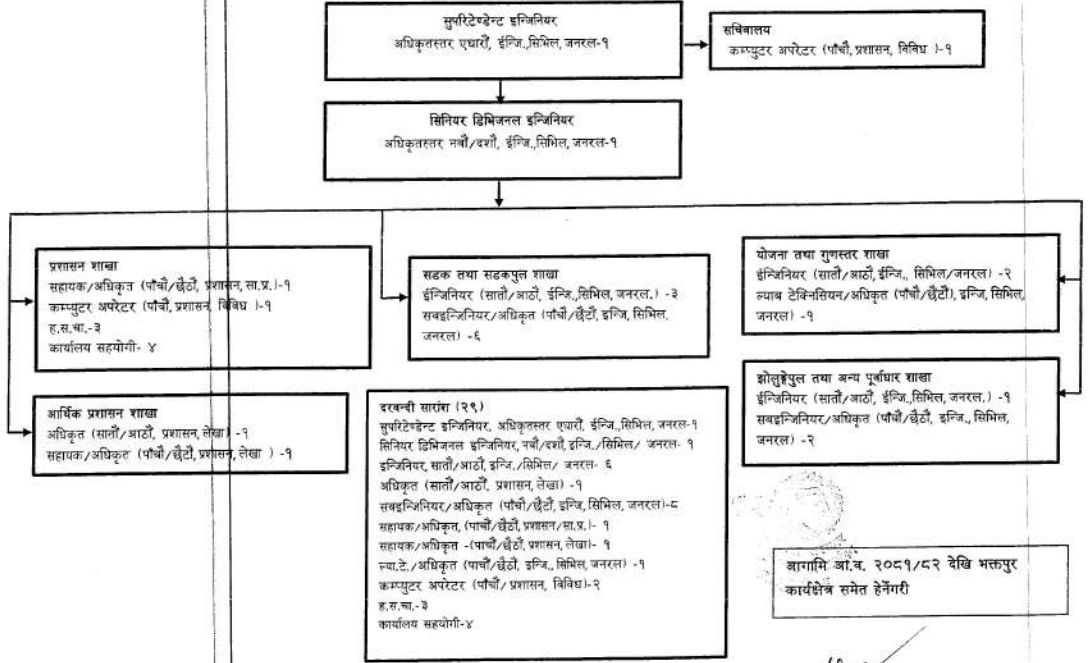 सुपरिटेण्डेन्ट इन्जिनियर
अधिकृतस्तर एघारौं, ईन्जि.,सिभिल, जनरल-१
सचिवालय
कम्प्युटर अपरेटर (पाँचौ, प्रशासन, विविध )-१
सिनियर डिभिजनल इन्जिनियर
अधिकृतस्तर नवौं/दशौं, ईन्जि.,सिभिल, जनरल-१
प्रशासन शाखा
सहायक/अधिकृत (पाँचौ/छैठौं, प्रशासन, सा.प्र.)-१
कम्प्युटर अपरेटर (पाँचौ, प्रशासन, विविध )-१
ह.स.चा.-३
कार्यालय सहयोगी- ४
सडक तथा सडकपुल शाखा
ईन्जिनियर (सातौं/आठौं, ईन्जि.,सिभिल, जनरल.) -३
सबइन्जिनियर/अधिकृत (पाँचौ/छैटौं, इन्जि, सिभिल,
जनरल) -६
योजना तथा गुणस्तर शाखा
ईन्जिनियर (सातौं/आठौं, ईन्जि., सिभिल/जनरल) -२
ल्याब टेक्निसियन/अधिकृत (पाँचौ/छैटौं), इन्जि, सिभिल,
जनरल) -१
आर्थिक प्रशासन शाखा
अधिकृत (सातौं/आठौं, प्रशासन, लेखा) -१
सहायक/अधिकृत (पाँचौ/छैटौं, प्रशासन, लेखा ) -१
झोलुङ्गेपुल तथा अन्य पूर्वाधार शाखा
ईन्जिनियर (सातौं/आठौं, ईन्जि.,सिभिल, जनरल.) -१
सबइन्जिनियर/अधिकृत (पाँचौ/छैठौं, इन्जि., सिभिल,
जनरल) -२
दरबन्दी सारांश (२९)
सुपरिटेण्डेन्ट इन्जिनियर, अधिकृतस्तर एघारौं, ईन्जि.,सिभिल, जनरल-१
सिनियर डिभिजनल इन्जिनियर, नवौं/दशौं, इन्जि./सिभिल/ जनरल- १
इन्जिनियर, सातौं/आठौं, इन्जि./सिभिल/ जनरल- ६
अधिकृत (सातौं/आठौं, प्रशासन, लेखा) -१
सबइन्जिनियर/अधिकृत (पाँचौ/छैटौं, इन्जि, सिभिल, जनरल)-८
सहायक/अधिकृत, (पाचौं/छैठौं, प्रशासन/सा.प्र.)- १
सहायक/अधिकृत -(पाचौं/छैठौं, प्रशासन, लेखा)- १
ल्या.टे./अधिकृत (पाचौं/छैठौं, इन्जि., सिभिल, जनरल) -१
कम्प्युटर अपरेटर (पाँचौ/ प्रशासन, विविध)-२
ह.स.चा.-३
कार्यालय सहयोगी-४
आगामि आ.व. २०८१/८२ देखि भक्तपुर
कार्यक्षेत्र समेत हेर्नेगरी